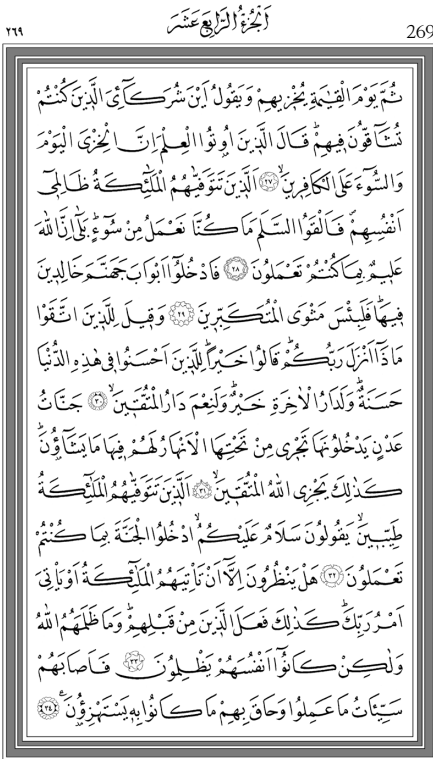 اَلْجُزْءُ الرَّابِعَ عَشَرَ
٢٦٩
269
ثُمَّ يَوْمَ الْقِيٰمَةِ يُخْزٖيهِمْ وَيَقُولُ اَيْنَ شُرَكَٓائِيَ الَّذٖينَ كُنْتُمْ
تُشَٓاقُّونَ فٖيهِمْؕ قَالَ الَّذٖينَ اُوتُوا الْعِلْمَ اِنَّ الْخِزْيَ الْيَوْمَ
وَالسُّٓوءَ عَلَى الْكَافِرٖينَۙ ﴿٢٧﴾ اَلَّذٖينَ تَتَوَفّٰيهُمُ الْمَلٰٓئِكَةُ ظَالِمٖٓي
اَنْفُسِهِمْ فَاَلْقَوُا السَّلَمَ مَا كُنَّا نَعْمَلُ مِنْ سُٓوءٍؕ بَلٰٓى اِنَّ اللّٰهَ
عَلٖيمٌ بِمَا كُنْتُمْ تَعْمَلُونَ ﴿٢٨﴾ فَادْخُلُٓوا اَبْوَابَ جَهَنَّمَ خَالِدٖينَ
فٖيهَاؕ فَلَبِئْسَ مَثْوَى الْمُتَكَبِّرٖينَ ﴿٢٩﴾ وَقٖيلَ لِلَّذٖينَ اتَّقَوْا
مَاذَٓا اَنْزَلَ رَبُّكُمْؕ قَالُوا خَيْراًؕ لِلَّذٖينَ اَحْسَنُوا فٖي هٰذِهِ الدُّنْيَا
حَسَنَةٌؕ وَلَدَارُ الْاٰخِرَةِ خَيْرٌؕ وَلَنِعْمَ دَارُ الْمُتَّقٖينَۙ ﴿٣٠﴾ جَنَّاتُ
عَدْنٍ يَدْخُلُونَهَا تَجْرٖي مِنْ تَحْتِهَا الْاَنْهَارُ لَهُمْ فٖيهَا مَا يَشَٓاؤُ۫نَؕ
كَذٰلِكَ يَجْزِي اللّٰهُ الْمُتَّقٖينَۙ ﴿٣١﴾ اَلَّذٖينَ تَتَوَفّٰيهُمُ الْمَلٰٓئِكَةُ
طَيِّبٖينَۙ يَقُولُونَ سَلَامٌ عَلَيْكُمُۙ ادْخُلُوا الْجَنَّةَ بِمَا كُنْتُمْ
تَعْمَلُونَ ﴿٣٢﴾ هَلْ يَنْظُرُونَ اِلَّٓا اَنْ تَأْتِيَهُمُ الْمَلٰٓئِكَةُ اَوْ يَأْتِيَ
اَمْرُ رَبِّكَؕ كَذٰلِكَ فَعَلَ الَّذٖينَ مِنْ قَبْلِهِمْؕ وَمَا ظَلَمَهُمُ اللّٰهُ
وَلٰكِنْ كَانُٓوا اَنْفُسَهُمْ يَظْلِمُونَ ﴿٣٣﴾ فَاَصَابَهُمْ
سَيِّـَٔاتُ مَا عَمِلُوا وَحَاقَ بِهِمْ مَا كَانُوا بِهٖ يَسْتَهْزِؤُ۫نَ ﴿٣٤﴾